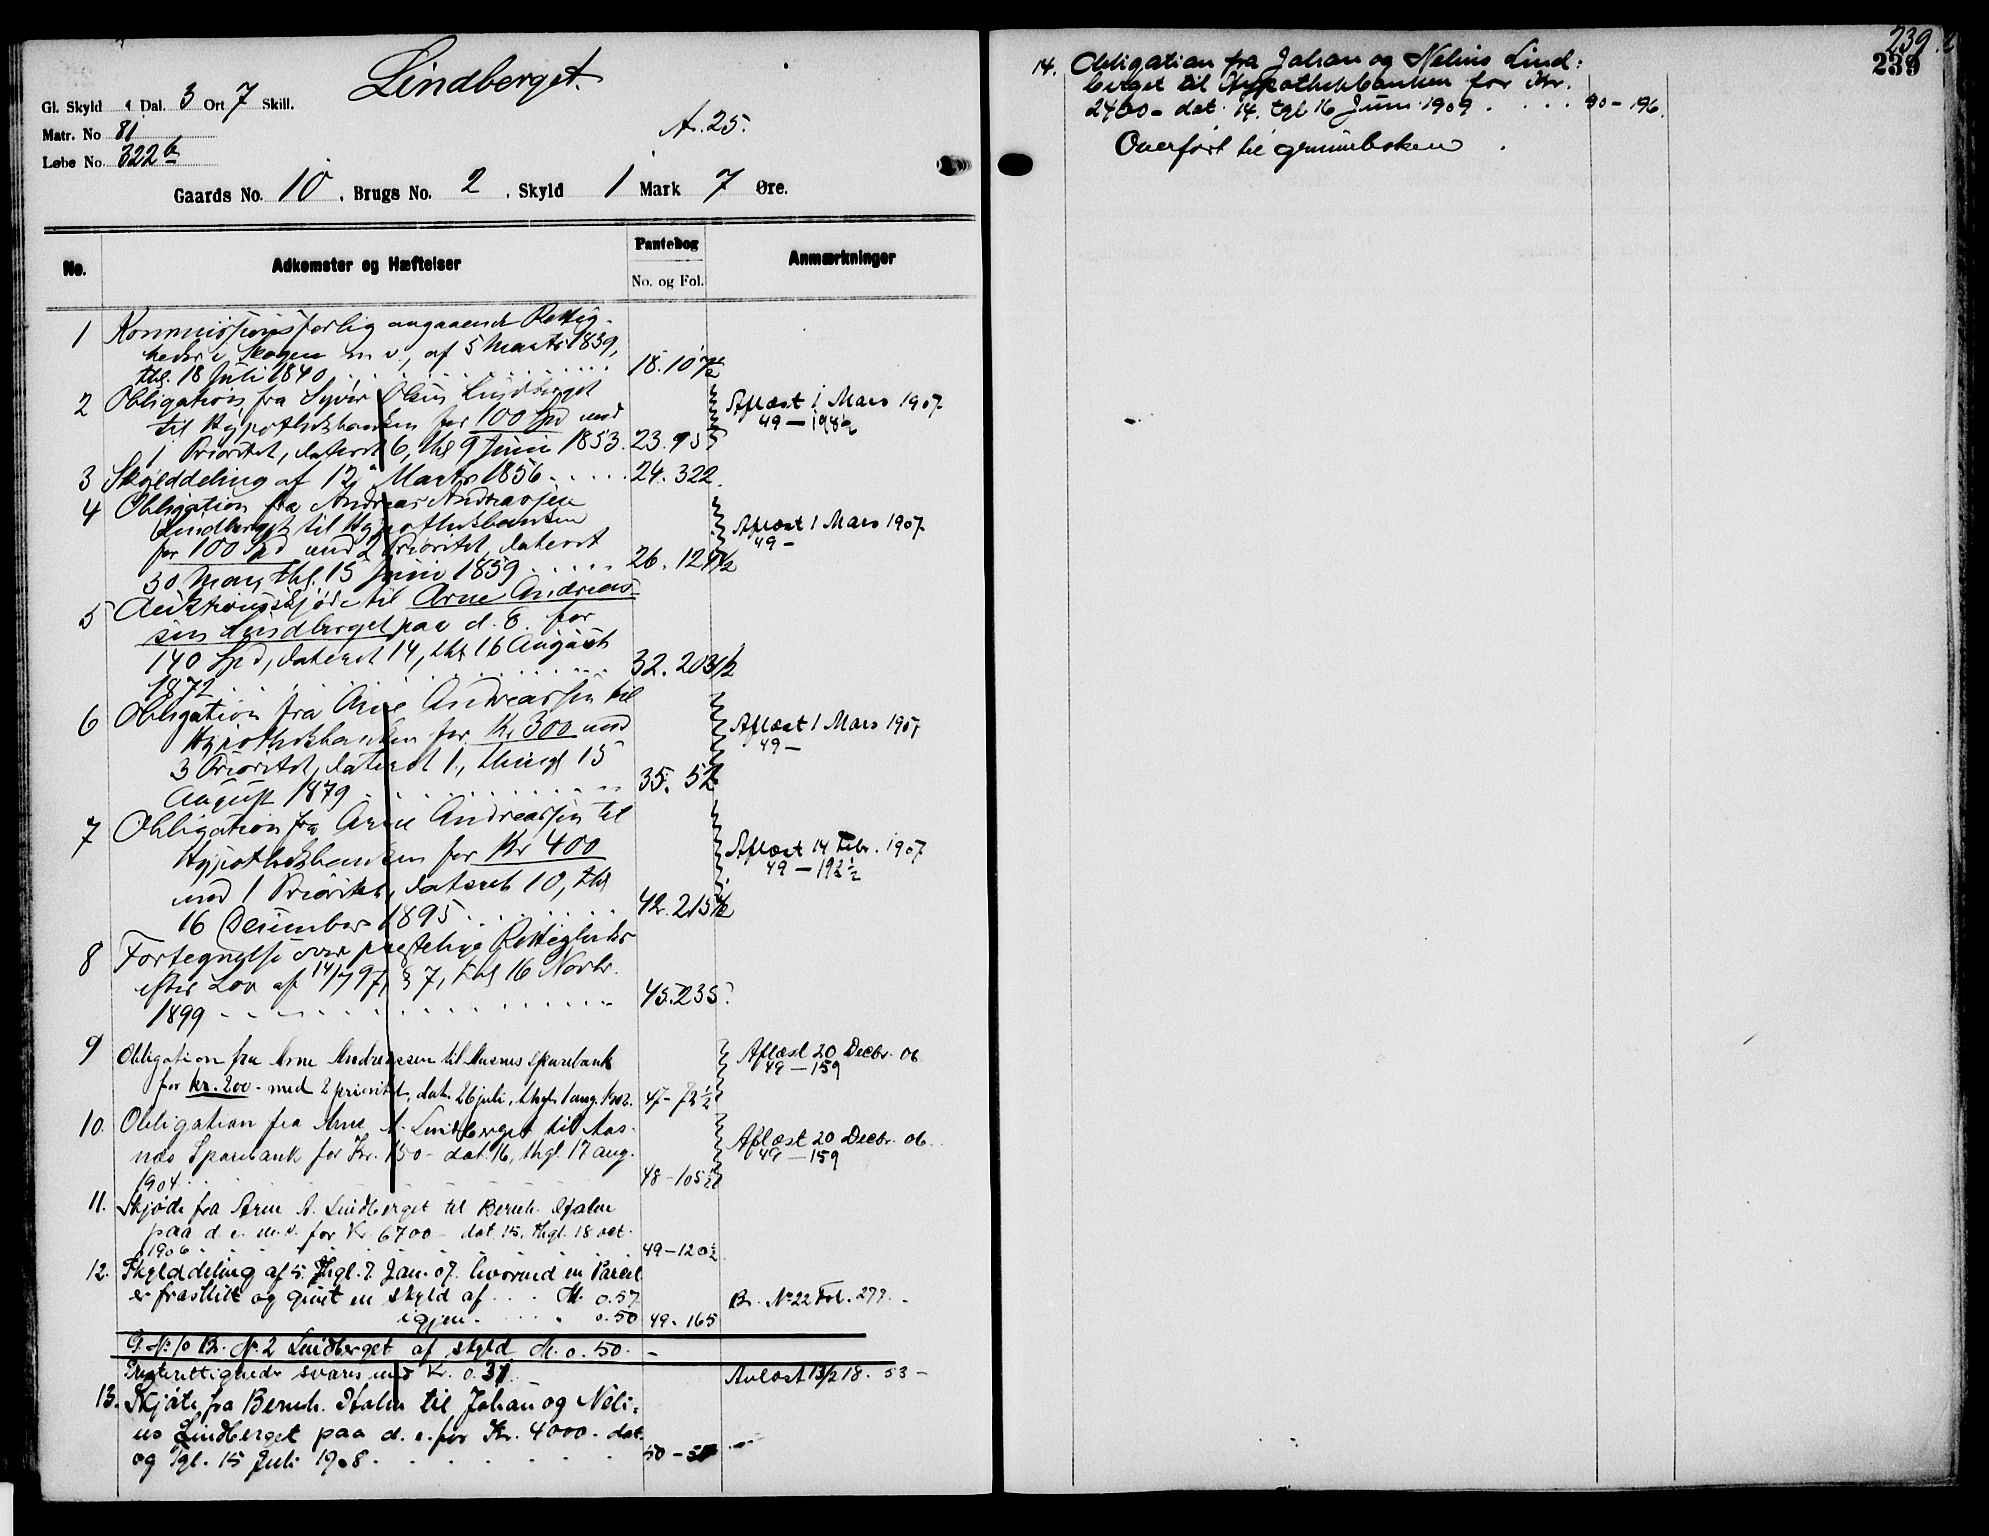 Lindberget.
Gl. Skyld Dal. 3 Ort 7 Skill.
Matr. No 81
Løbe No. 322 b
A. 25.
Gaards No. 10, Brugs No. 2, Skyld 1 Mark 7 Øre.
No. Adkomster og Hæftelser Pantebog No. og Fol. Anmærkninger
1 Kommissionsforlig angaaende Rettig-
heder i Skogen m. v., af 5 Marts 1839,
thl. 18 Juli 1840 18. 107
2 Obligation fra Syver Olsen Lindberget
til Hypothekbanken for 100 Spd med
1 Prioritet, dateret 6, thl 9 Juni 1853. 23. 95
Aflæst 1 Mars 1907.
49 — 198
3 Skylddeling af 12 Marts 1856 24. 322.
4 Obligation fra Andreas Andreassen
Lindberget til Hypothekbanken
for 100 Spd med 2 Prioritet, dateret
30 Mai, thl. 15 Juni 1859 26. 121 1/2
Aflæst 1 Mars 1907.
49 —
5 Auktionsskjøde til Arne Andreas-
sen Lindberget paa d. E. for
140 Spd, dateret 14, thl 16 August
1872 32. 203 1/2
6 Obligation fra Arne Andreassen til
Hypothekbanken for Kr 300 med
3 Prioritet, dateret 1, thingl 15
August 1879 35. 52
Aflæst 1 Mars 1907
49 —
7 Obligation fra Arne Andreassen til
Hypothekbanken for Kr 400
med 1 Prioritet, dateret 10, thl
16 December 1895 42. 215 1/2
Aflæst 14 Febr. 1907
49 — 192 1/2
8 Fortegnelse over præstelige Rettigheder
efter Lov af 14/7 97, § 7, thl 16 Novbr.
1899 45. 235.
9 Obligation fra Arne Andreassen til Aasnes Sparebank
for kr. 200 - med 2 prioritet, dat. 26 juli, thgl. 1 aug. 1902. 47 - 72 1/2
Aflæst 20 Decbr. 06
49 — 159
10. Obligation fra Arne A. Lindberget til Aas-
nes Sparebank for Kr. 150 - dat. 16, thgl. 17 aug.
1904. 48 - 105 1/2
Aflæst 20 Decbr. 06.
49 — 159
11. Skjøde fra Arne A. Lindberget til Bernh. Holm
paa d. e. m. v. for Kr 6700 - dat. 15, thgl. 18 oct.
1906 49 - 120 1/2
12. Skylddeling af 5. thgl. 7. Jan. 07. hvorved en Parcel
er fraskilt og givet en skyld af M. 0.57 Br. No 22 Fol. 277.
igjen 0.50 49. 165
G. No. 10 Br. No. 2 Lindberget af skyld M. 0.50. -
Presterettigheder svares med Kr. 0.31. Avlæst 13/2 18. 53 -
13. Skjøte fra Bernh. Holm til Johan og Neli-
us Lindberget paa d. e. for Kr. 4000 - dat.
og tgl. 15 Juli 1908. 50 - 51
239
239
14. Obligation fra Johan og Nelius Lind-
berget til Hypothekbanken for Kr.
2400 - dat. 14. tgl 16 Juni 1909. 50 - 196.
Overført til grunnboken.